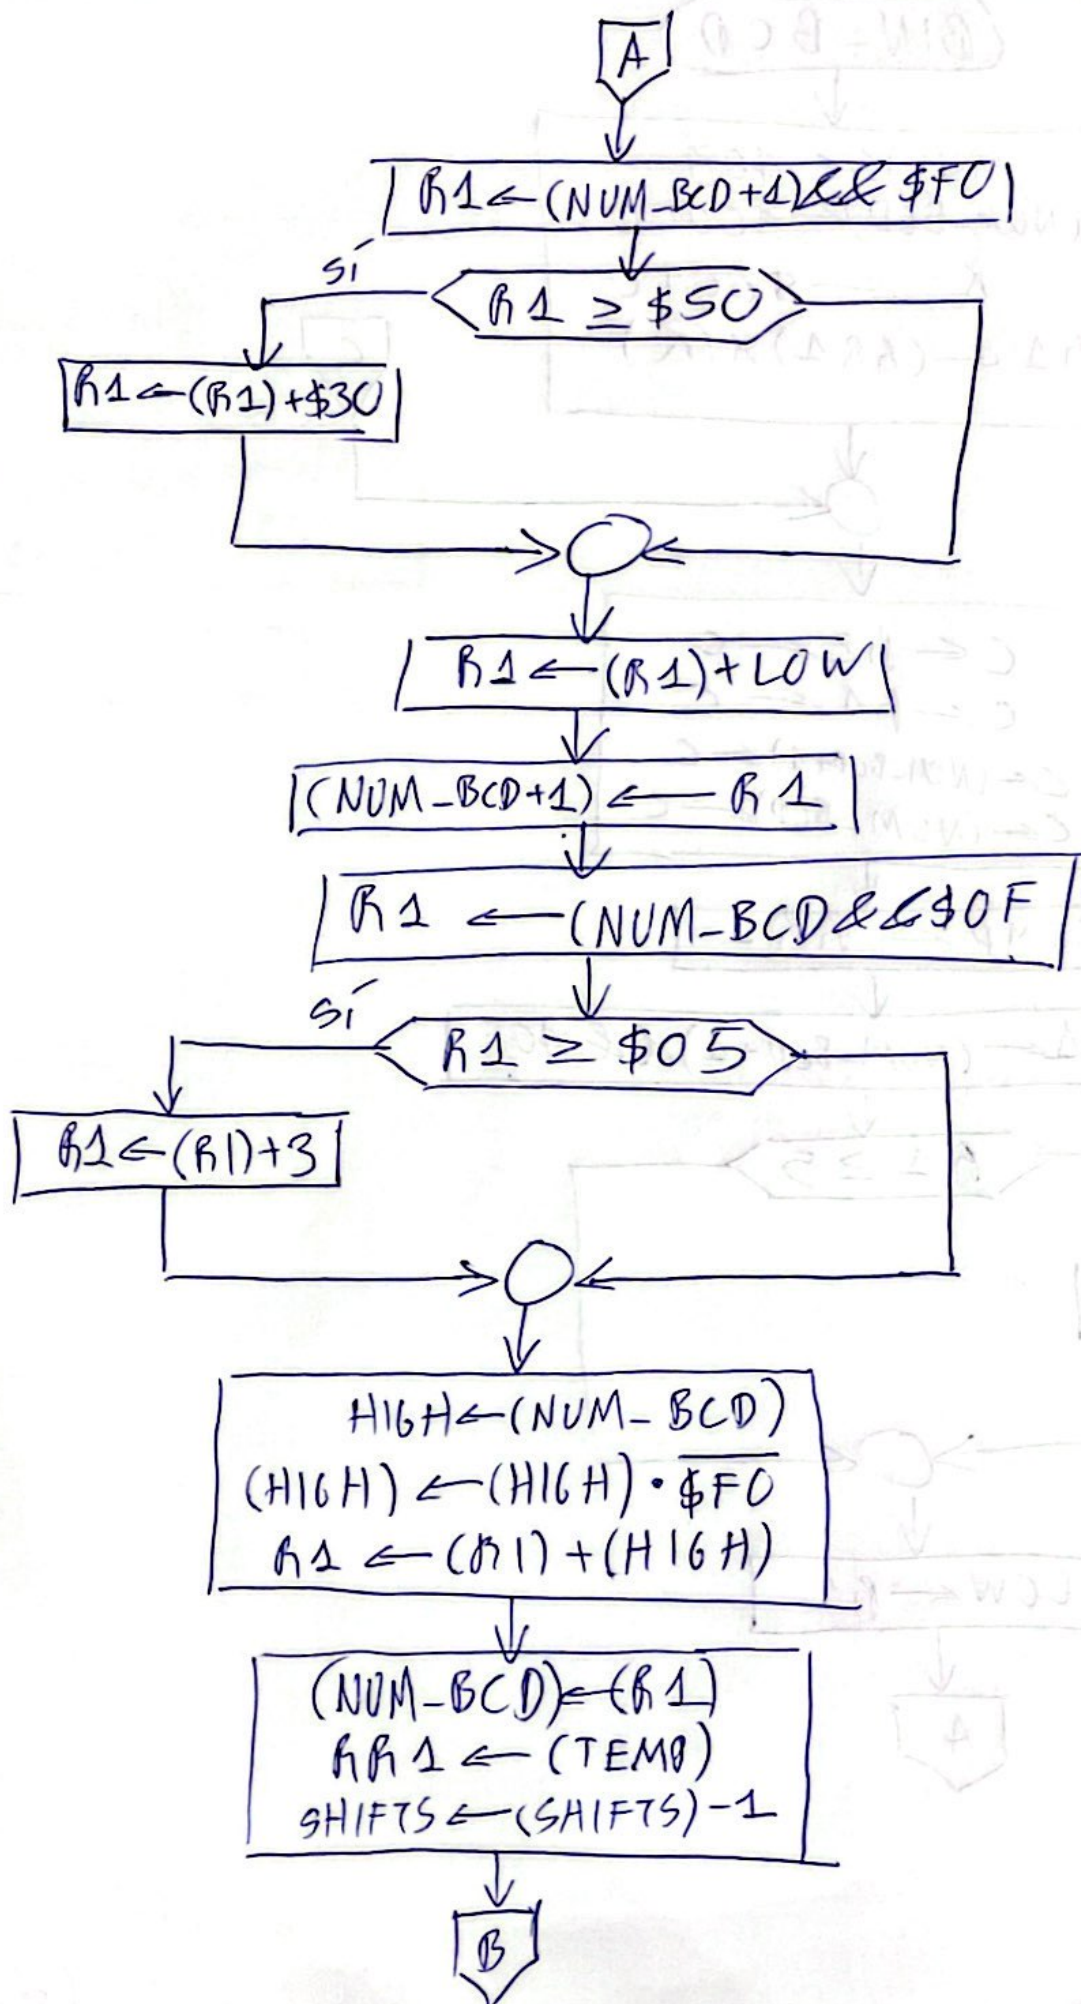 A
R1 ← (NUM_BCD+1) && $F0
sí
R1 ≥ $50
R1 ← (R1) + $30
R1 ← (R1) + LOW
(NUM_BCD+1) ← R1
R1 ← (NUM_BCD && $0F
sí
R1 ≥ $05
R1 ← (R1)+3
HIGH ← (NUM_BCD)
(HIGH) ← (HIGH) · $̅F̅0̅
R1 ← (R1) + (HIGH)
(NUM_BCD) ← (R1)
RR1 ← (TEMP)
SHIFTS ← (SHIFTS) - 1
B